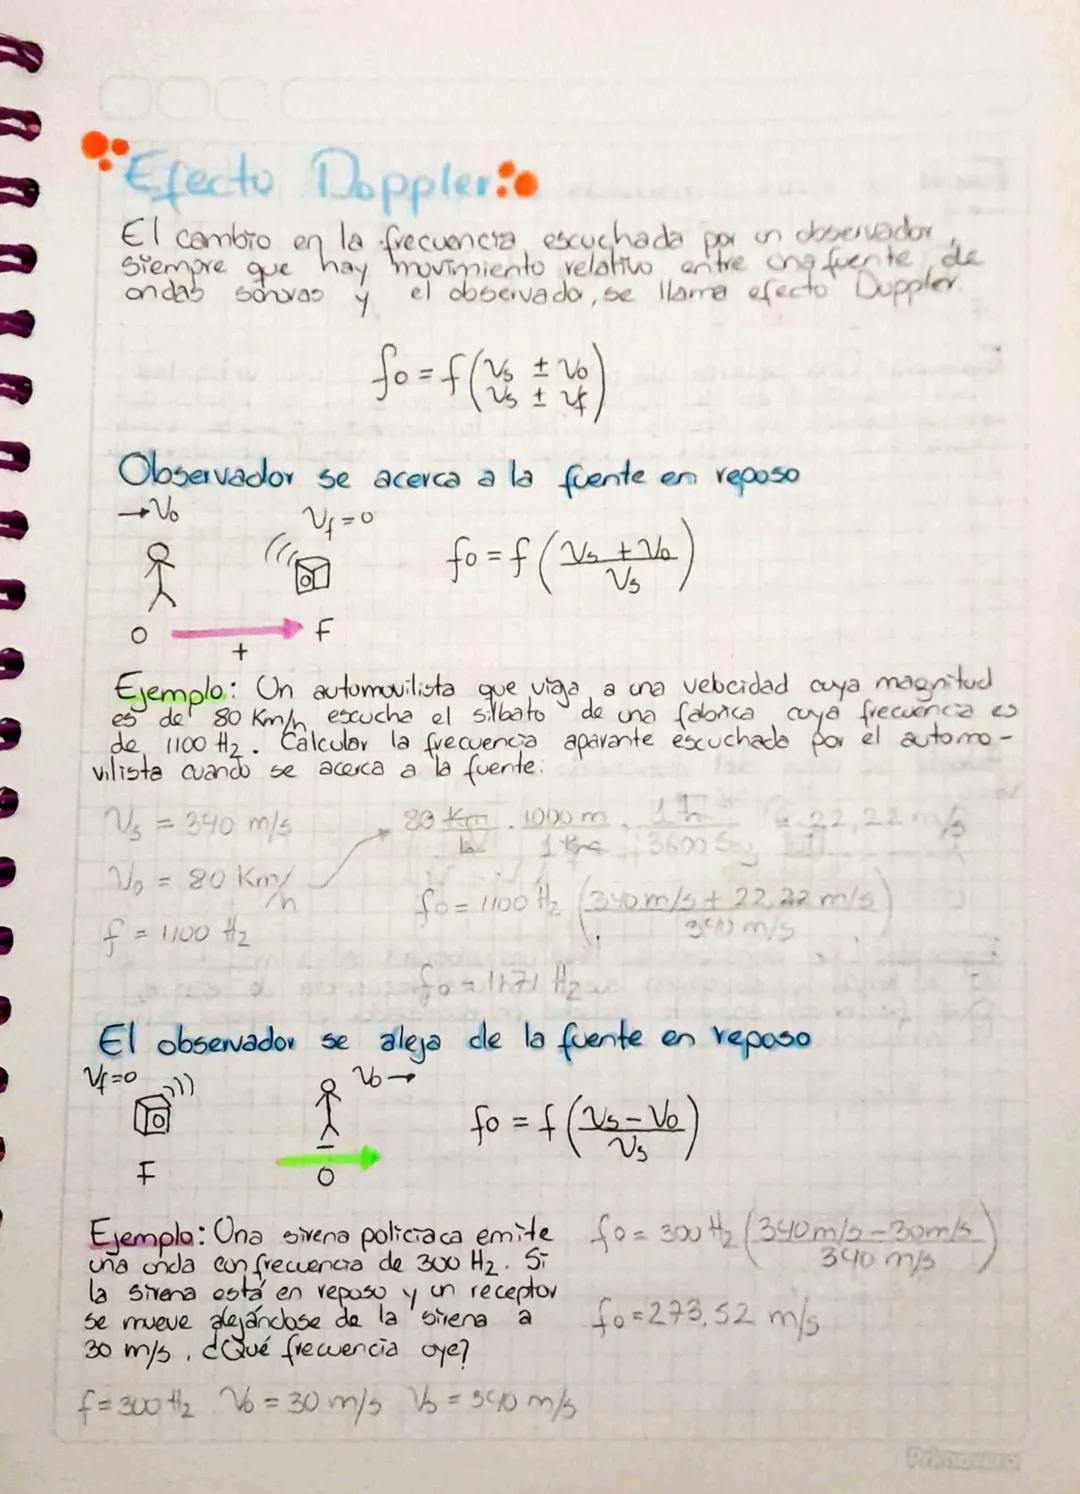 Efecto Doppler:
El cambio en la frecuencia escuchada por un observador,
siempre que hay movimiento relativo entre una fuente de
ondas sonoras y el observador, se llama efecto Doppler.
fo = f (Vs ± Vo / Vs ± Vf)
Observador se acerca a la fuente en reposo
→Vo Vf = 0
fo = f (Vs + Vo / Vs)
O F
+
Ejemplo: Un automovilista que viaja a una velocidad cuya magnitud
es de 80 Km/h escucha el silbato de una fabrica cuya frecuencia es
de 1100 Hz. Calcular la frecuencia aparante escuchada por el automo-
vilista cuando se acerca a la fuente.
Vs = 340 m/s
80 Km . 1000 m . 1 h 22,22 m/s
1 Km 3600 s
Vo = 80 Km/h
fo = 1100 Hz (340 m/s + 22,22 m/s / 340 m/s)
f = 1100 Hz
fo = 1171 Hz
El observador se aleja de la fuente en reposo
Vf=0 Vo →
fo = f (Vs - Vo / Vs)
F O
Ejemplo: Una sirena policiaca emite
una onda con frecuencia de 300 Hz. Si
la sirena está en reposo y un receptor
se mueve alejándose de la sirena a
30 m/s, ¿Qué frecuencia oye?
fo = 300 Hz (340 m/s - 30 m/s / 340 m/s)
fo = 273,52 m/s
f = 300 Hz Vo = 30 m/s Vs = 340 m/s
Primavera